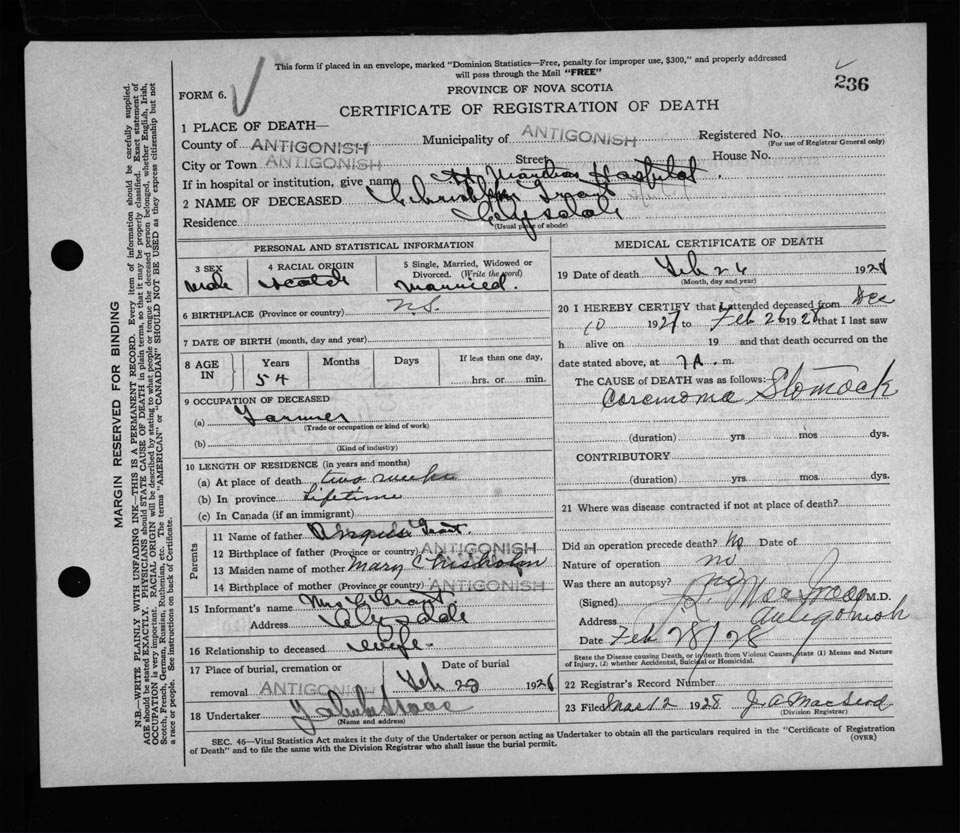 This form if placed in an envelope, marked "Dominion Statistics—Free, penalty for improper use, $300," and properly addressed
will pass through the Mail "FREE"
236
FORM 6.
PROVINCE OF NOVA SCOTIA
CERTIFICATE OF REGISTRATION OF DEATH
1 PLACE OF DEATH—
County of ANTIGONISH Municipality of ANTIGONISH Registered No.
(For use of Registrar General only)
City or Town ANTIGONISH Street House No.
If in hospital or institution, give name St. Marthas Hospital.
2 NAME OF DECEASED Grant
Residence Clydesdale
(Usual place of abode)
PERSONAL AND STATISTICAL INFORMATION
3 SEX 4 RACIAL ORIGIN 5 Single, Married, Widowed or
Divorced. (Write the word)
Male Scotch Married.
6 BIRTHPLACE (Province or country) N.S.
7 DATE OF BIRTH (month, day and year)
8 AGE IN Years Months Days If less than one day,
54 hrs. or min.
9 OCCUPATION OF DECEASED
(a) Farmer
(Trade or occupation or kind of work)
(b)
(Kind of industry)
10 LENGTH OF RESIDENCE (in years and months)
(a) At place of death two weeks
(b) In province Lifetime
(c) In Canada (if an immigrant)
Parents
11 Name of father Angus Grant
12 Birthplace of father (Province or country) ANTIGONISH
13 Maiden name of mother Mary Chisholm
14 Birthplace of mother (Province or country) ANTIGONISH
15 Informant's name Mrs C Grant
Address Clydesdale
16 Relationship to deceased wife.
17 Place of burial, cremation or Date of burial
removal ANTIGONISH Feb 28 1928
18 Undertaker
(Name and address)
MEDICAL CERTIFICATE OF DEATH
19 Date of death Feb 26 1928
(Month, day and year)
20 I HEREBY CERTIFY that I attended deceased from Dec
10 1927 to Feb 26 1928 that I last saw
h alive on 19 and that death occurred on
date stated above, at 7 A. m.
The CAUSE of DEATH was as follows:
Carcinoma Stomach
(duration) yrs mos dys.
CONTRIBUTORY
(duration) yrs. mos. dys.
21 Where was disease contracted if not at place of death?
Did an operation precede death? No Date of
Nature of operation no
Was there an autopsy? no
(Signed) M.D.
Address Antigonish
Date Feb 28/28
State the Disease causing Death, or in death from Violent Causes, state (1) Means and Nature
of Injury, (2) whether Accidental, Suicidal or Homicidal.
22 Registrar's Record Number
23 Filed Mar 12 1928 J A MacLeod
(Division Registrar)
SEC. 46—Vital Statistics Act makes it the duty of the Undertaker or person acting as Undertaker to obtain all the particulars required in the "Certificate of Registration
of Death" and to file the same with the Division Registrar who shall issue the burial permit. (OVER)
MARGIN RESERVED FOR BINDING
N.B.—WRITE PLAINLY WITH UNFADING INK—THIS IS A PERMANENT RECORD. Every item of information should be carefully supplied.
AGE should be stated EXACTLY. PHYSICIANS should STATE CAUSE OF DEATH in plain terms, so that it may be properly classified. Exact statement of
OCCUPATION is very important. RACIAL ORIGIN will be described by stating to what people or tongue the deceased person belonged, whether English, Irish,
Scotch, French, German, Russian, Ruthenian, etc. The terms "AMERICAN" or "CANADIAN" SHOULD NOT BE USED as they express citizenship but not
a race or people. See instructions on back of Certificate.